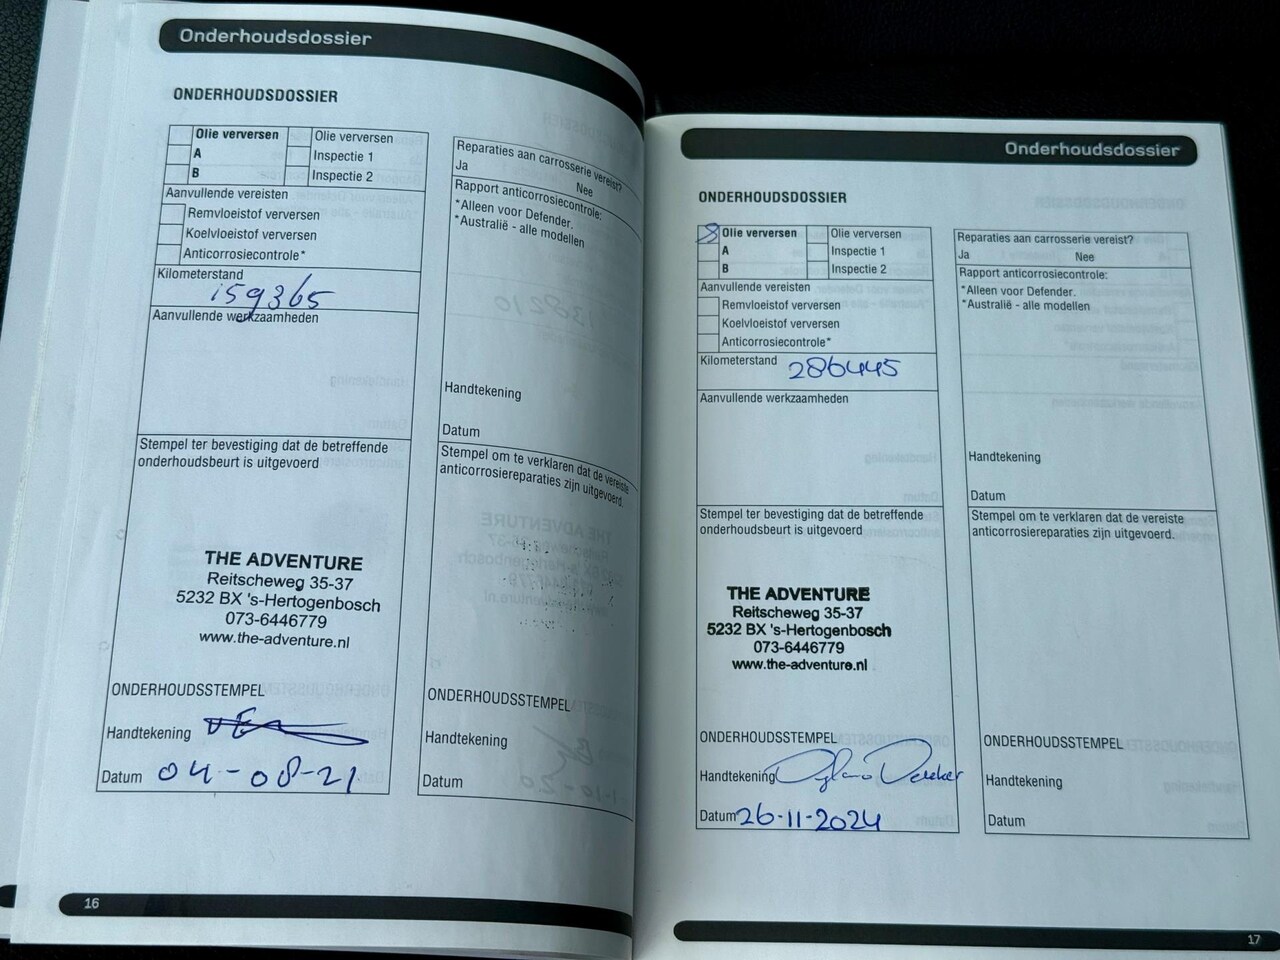 Onderhoudsdossier
ONDERHOUDSDOSSIER
Olie verversen
A
B
Olie verversen
Inspectie 1
Inspectie 2
Aanvullende vereisten
Remvloeistof verversen
Koelvloeistof verversen
Anticorrosiecontrole*
Kilometerstand
159365
Aanvullende werkzaamheden
Stempel ter bevestiging dat de betreffende
onderhoudsbeurt is uitgevoerd
THE ADVENTURE
Reitscheweg 35-37
5232 BX 's-Hertogenbosch
073-6446779
www.the-adventure.nl
ONDERHOUDSSTEMPEL
Handtekening
Datum 04-08-21
Reparaties aan carrosserie vereist?
Ja Nee
Rapport anticorrosiecontrole:
*Alleen voor Defender.
*Australië - alle modellen
Handtekening
Datum
Stempel om te verklaren dat de vereiste
anticorrosiereparaties zijn uitgevoerd.
ONDERHOUDSSTEMPEL
Handtekening
Datum
16
Onderhoudsdossier
ONDERHOUDSDOSSIER
Olie verversen
A
B
Olie verversen
Inspectie 1
Inspectie 2
Aanvullende vereisten
Remvloeistof verversen
Koelvloeistof verversen
Anticorrosiecontrole*
Kilometerstand 286445
Aanvullende werkzaamheden
Stempel ter bevestiging dat de betreffende
onderhoudsbeurt is uitgevoerd
THE ADVENTURE
Reitscheweg 35-37
5232 BX 's-Hertogenbosch
073-6446779
www.the-adventure.nl
ONDERHOUDSSTEMPEL
Handtekening
Datum 26-11-2024
Reparaties aan carrosserie vereist?
Ja Nee
Rapport anticorrosiecontrole:
*Alleen voor Defender.
*Australië - alle modellen
Handtekening
Datum
Stempel om te verklaren dat de vereiste
anticorrosiereparaties zijn uitgevoerd.
ONDERHOUDSSTEMPEL
Handtekening
Datum
17